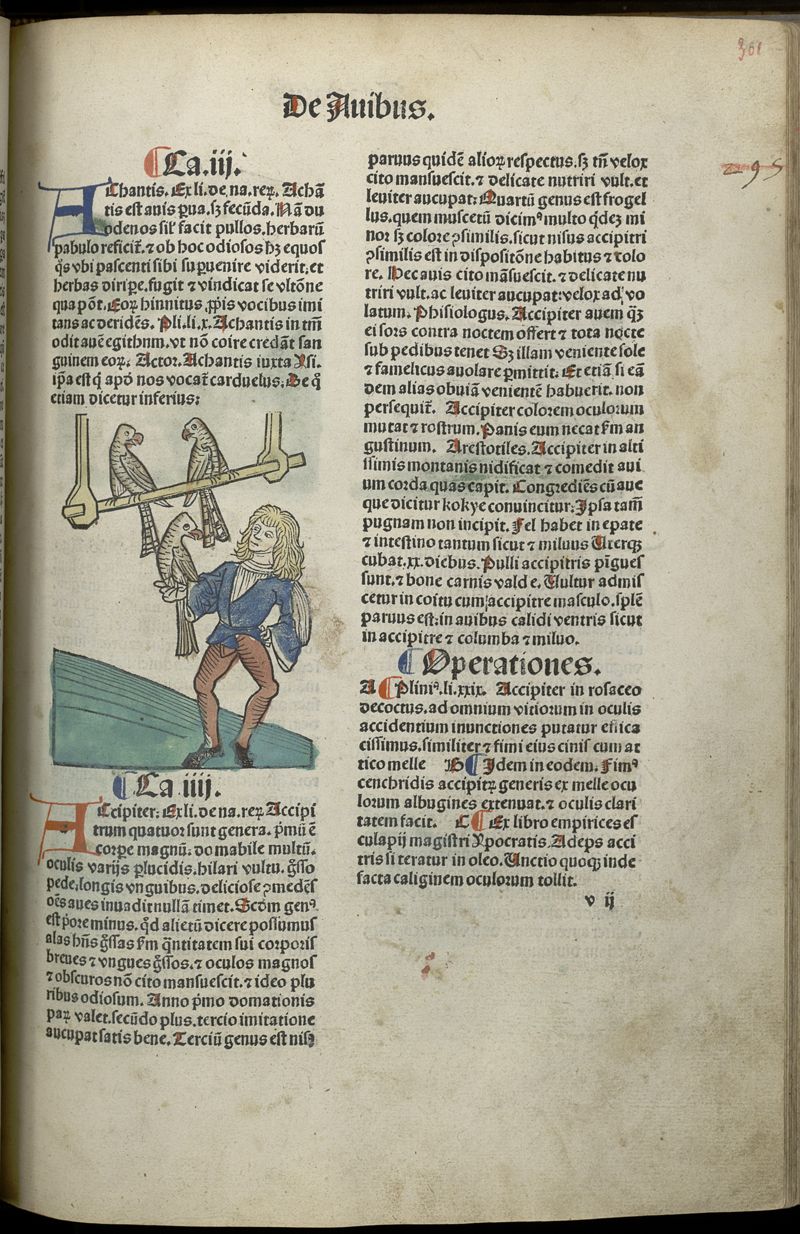 301
De Auibus.
295
Ca.iij.
AChantis. Ex li. de. na. reꝝ. Achā
tis est auis ꝑua. sꝫ fecūda. Nā du
odenos sil' facit pullos. herbarū
pabulo reficit̄. ⁊ ob hoc odiosos hꝫ equos
q̄s vbi pascenti sibi suꝑuenire viderit. et
herbas diriꝑe. fugit ⁊ vindicat se vltōne
qua pōt. Eoꝝ hinnitus ꝓpris vocibus imi
tans ac deridēs. Pli. li. x. Achantis in tm̄
odit auē egithum. vt nō coire credāt san
guinem eoꝝ. Actor. Achantis iuxta Ysi.
ip̄a est q̄ apd̄ nos vocat̄ carduelus. De q̄
etiam dicetur inferius:
Ca iiij.
ACcipiter: Ex li. de na. reꝝ. Accipi
trum quatuor sunt genera. pꝰmū ē
corꝑe magnū: domabile multū.
oculis varijs ꝑlucidis. hilari vultu. g̃sso
pede. longis vnguibus. deliciose ꝯmedēs
oēs aues inuadit nullā timet. Scd̄m genꝰ
est pore minus. qd̄ alietū dicere possumus
alas hn̄s g̃ssas fm̄ q̄ntitatem sui corporis
breues ⁊ vngues g̃ssos. ⁊ oculos magnos
⁊ obscuros nō cito mansuescit. ⁊ ideo plu
ribus odiosum. Anno pꝰmo domationis
paꝝ valet. secūdo plus. tercio imitatione
aucupat satis bene. Terciū genus est nisꝰ
paruus quidē alioꝝ respectus. sꝫ tm̄ velox
cito mansuescit. ⁊ delicate nutriri vult. et
leuiter aucupat: Quartū genus est frogel
lus. quem muscetū dicimꝰ multo q̄dez mi
nor sꝫ colore ꝯsimilis. sicut nisus accipitri
ꝯsimilis est in dispositōne habitus ⁊ colo
re. Hec auis cito māsuescit. ⁊ delicate nu
triri vult. ac leuiter aucupat: velox ad vo
latum. Phisiologus. Accipiter auem q̄ꝫ
ei sors contra noctem offert ⁊ tota nocte
sub pedibus tenet Sꝫ illam veniente sole
⁊ famelicus auolare ꝑmittit: Et etiā si eā
dem alias obuiā venientē habuerit. non
persequit̄. Accipiter colorem oculorum
mutat ⁊ rostrum. Panis eum necat fm̄ au
gustinum. Arestotiles. Accipiter in alti
ssimis montanis nidificat ⁊ comedit aui
um corda quas capit. Congrediēs cū aue
que dicitur kokye conuincitur: Ipsa tam̄
pugnam non incipit. Fel habet in epate
⁊ intestino tantum sicut ⁊ miluus Uterqꝫ
cubat. xx. diebus. Pulli accipitris pīgues
sunt. ⁊ bone carnis valde. Uultur admis
cetur in coitu cum accipitre masculo. splē
paruus est: in auibus calidi ventris sicut
in accipitre ⁊ columba ⁊ miluo.
Operationes.
A Pliniꝰ. li. xxix. Accipiter in rosaceo
decoctus. ad omnium vitiorum in oculis
accidentium inunctiones putatur effica
cissimus. similiter ⁊ fimi eius cinis cum at
tico melle B Idem in eodem. Fimꝰ
cenchridis accipitꝝ generis ex melle ocu
lorum albugines extenuat. ⁊ oculis clari
tatem facit. C Ex libro empirices es
culapij magistri Ypocratis. Adeps acci
tris si teratur in oleo. Unctio quoqꝫ inde
facta caliginem oculorum tollit.
v ij